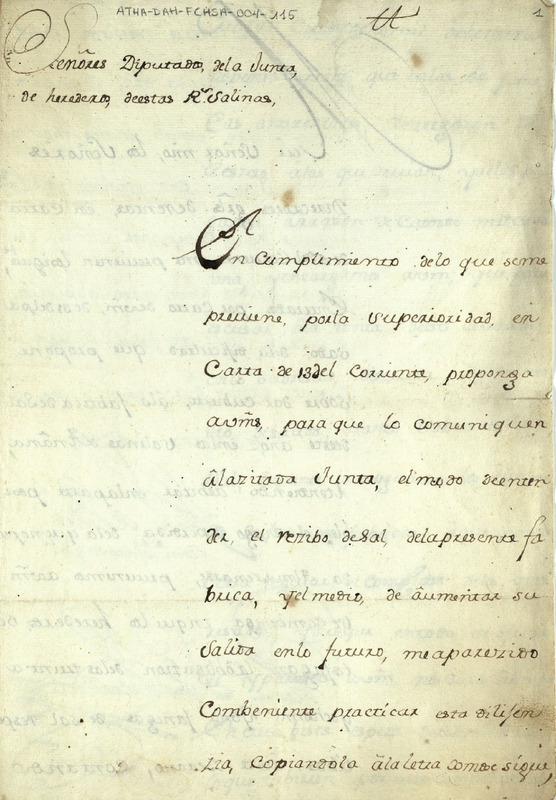 ATHA-DAH-FCHSA-004-115
1
Señores Diputados, dela Junta,
de herederos, deestas Rs. Salinas,
En Cumplimiento delo que seme
previene, porla Superioridad, en
Carta de 13 del Corriente, propongo
avms, para que lo comuniquen
âlazitada Junta, el modo deenten
der, el rezibo deSal, delapresente fa
brica, yel medio, de aumentar su
Salida enlo futuro, meaparezido
Combeniente practicar esta dilijen
zia, Copiandola âlaletra comose sigue,